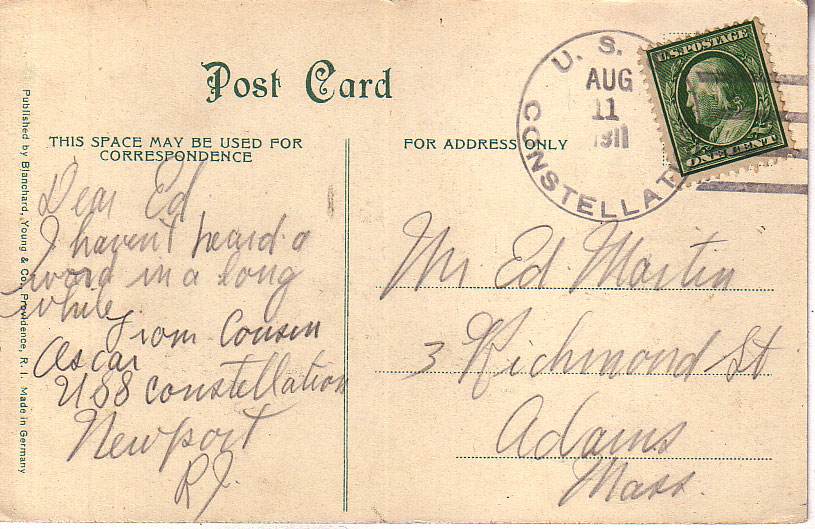 Post Card
THIS SPACE MAY BE USED FOR
CORRESPONDENCE
FOR ADDRESS ONLY
Published by Blanchard, Young & Co., Providence, R. I. Made in Germany
U. S.
AUG
11
1911
CONSTELLATI
U.S. POSTAGE
ONE CENT
Dear Ed
I haven't heard a
word in a long
while.
From Cousin
Oscar
USS Constellation
Newport
R.I.
Mr. Ed. Martin
3 Richmond St
Adams
Mass.